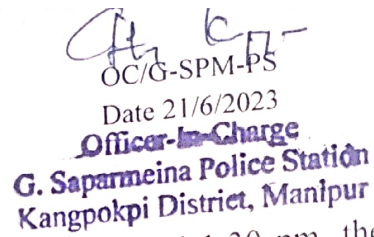 OC/G-SPM-PS
Date 21/6/2023
Officer-In-Charge
G. Saparmeina Police Station
Kangpokpi District, Manipur
30 pm, the